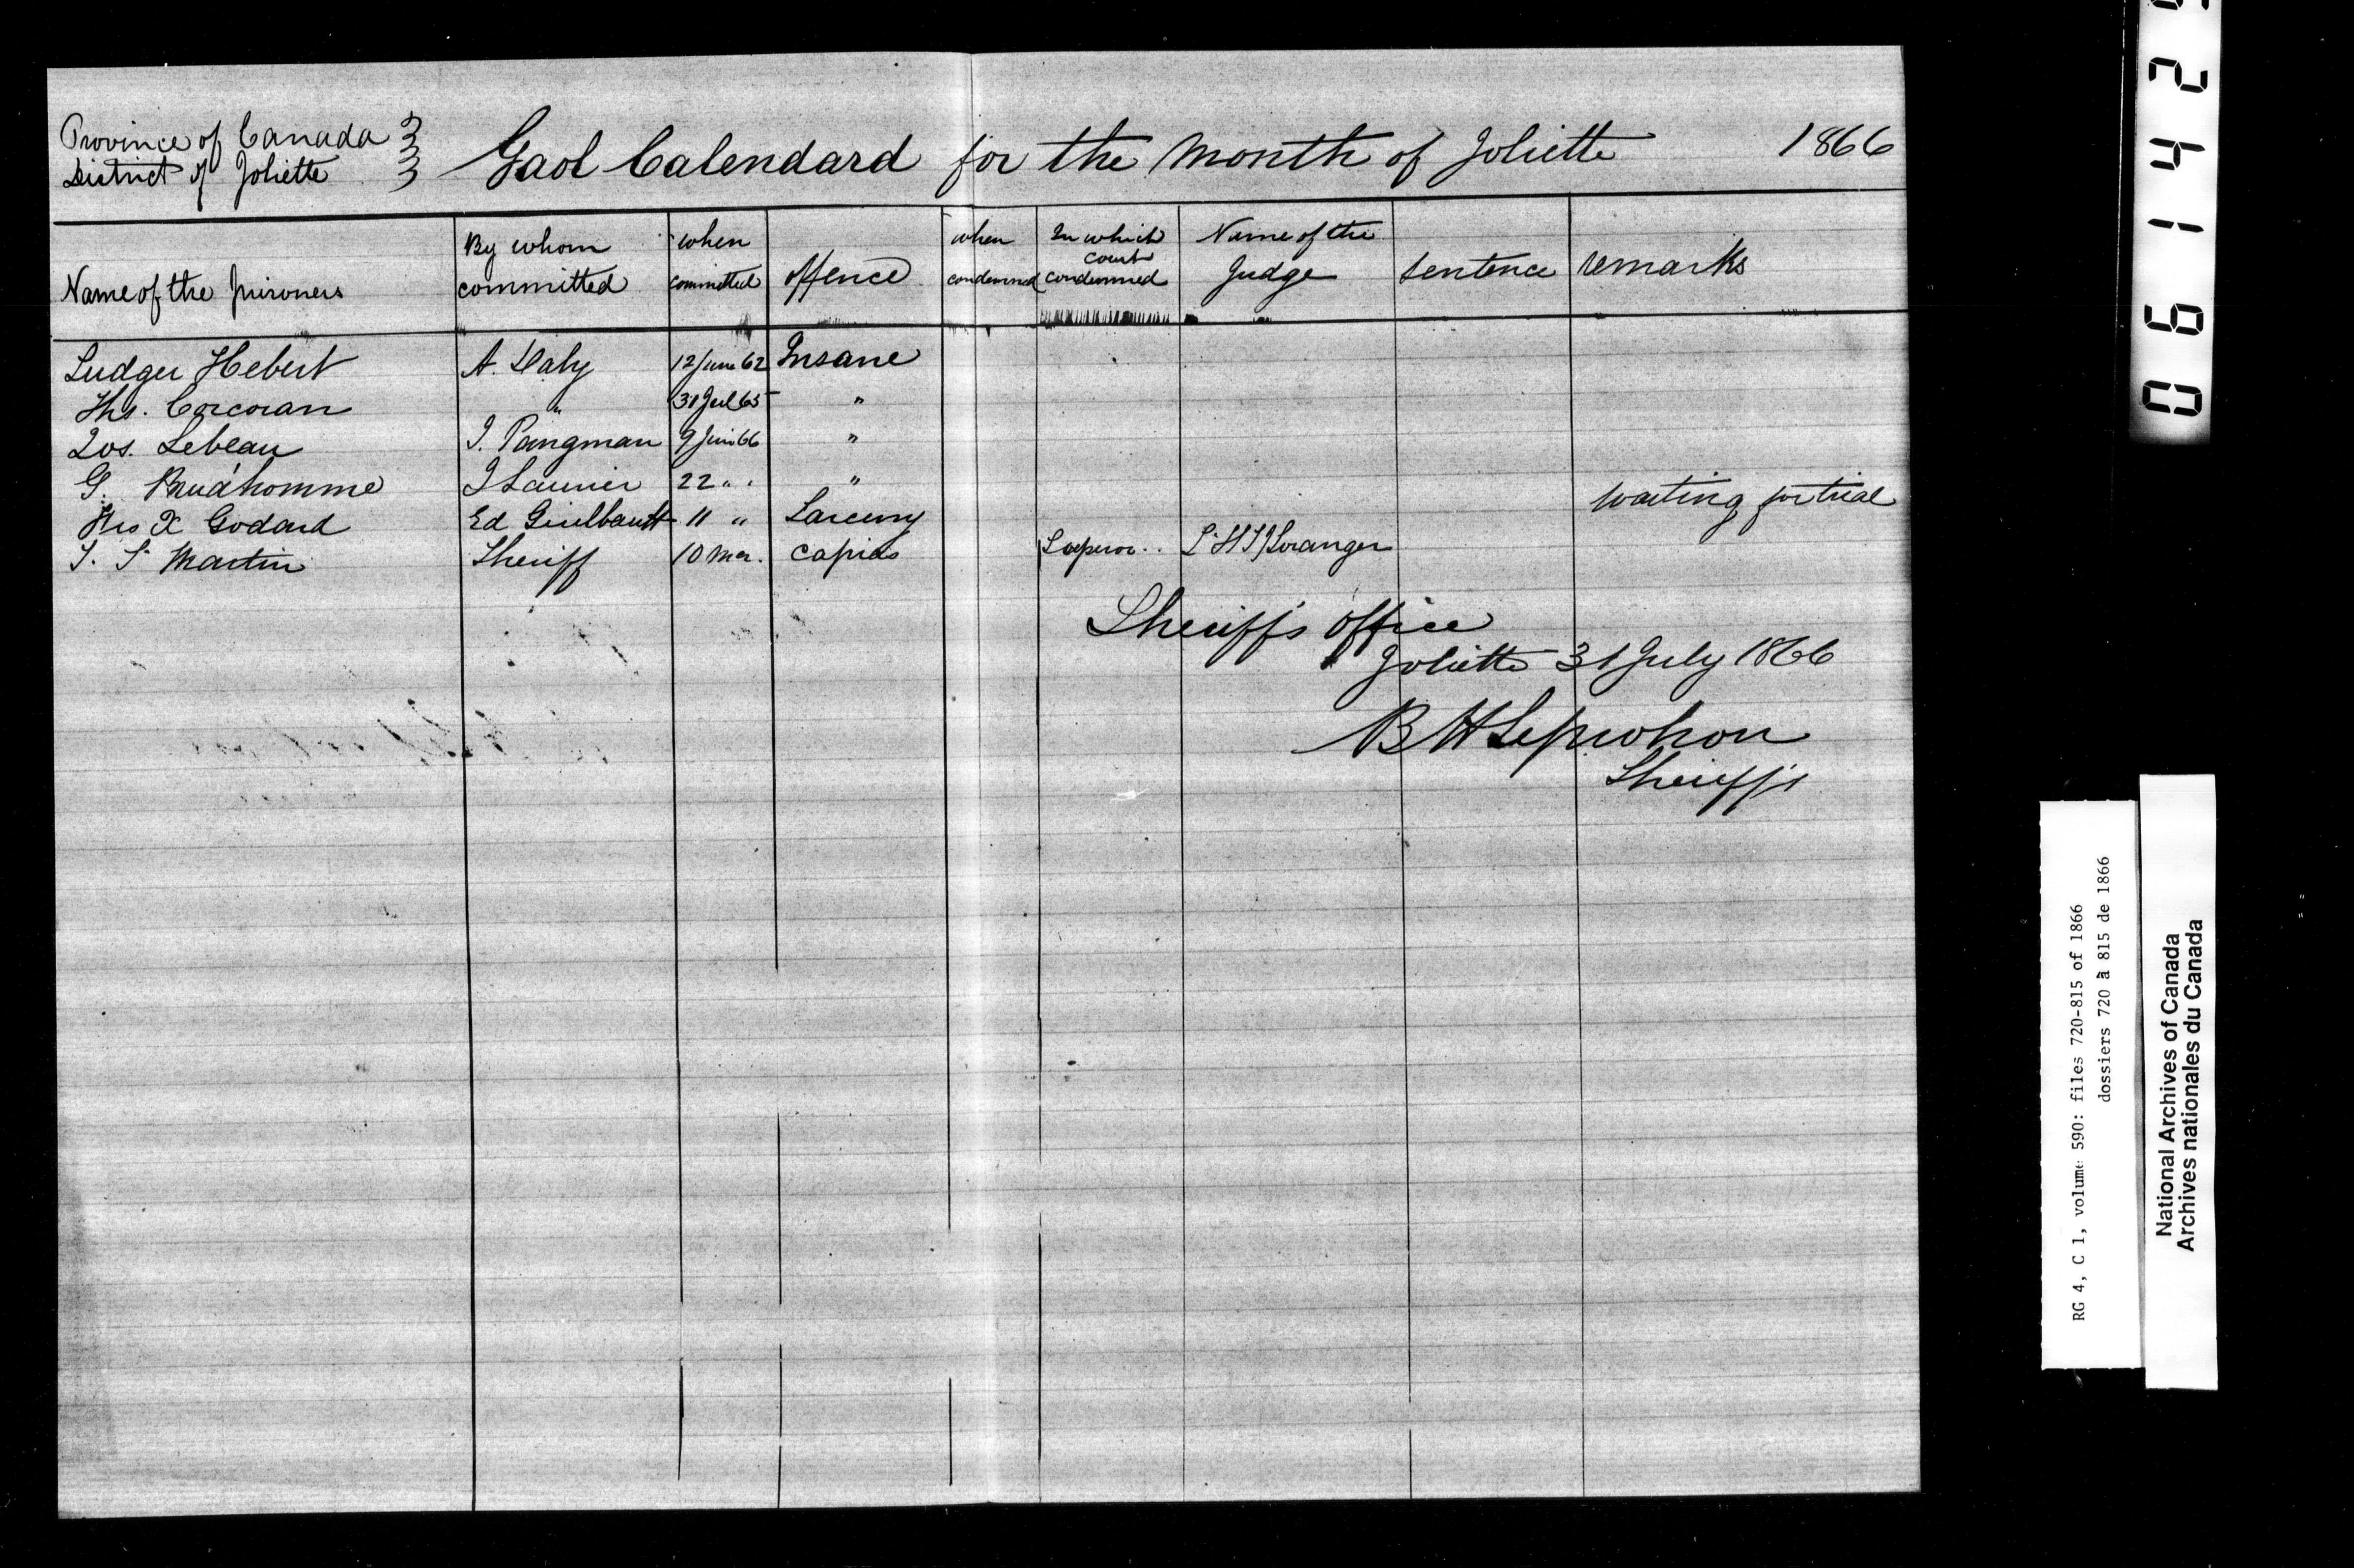 Province of Canada
District of Joliette
Gaol Calendard for the Month of Joliette 1866
Name of the prisoners
By whom committed
when committed
offence
when condemned
In which court condemned
Name of the Judge
sentence
remarks
Ludger Hebert A. Daly 12 June 62 Insane
Ths. Corcoran " 31 Jul 65 "
Jos. Lebeau J. Pangman 9 Juin 66 "
G. Prud'homme J Laurier 22 " "
Frs X Godard Ed Guilbault 11 " Larceny waiting for trial
Martin Sheriff 10 Mar. capias Superior L. Loranger
Sheriff's office
Joliette 31 July 1866
B H Leprohon
Sheriff's
06142
RG 4, C 1, volume 590: files 720-815 of 1866
dossiers 720 à 815 de 1866
National Archives of Canada
Archives nationales du Canada